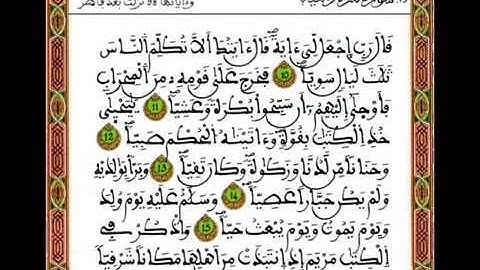 قَالَ رَبِّ اِجْعَل لِّيَ ءَايَةً قَالَ ءَايَتُكَ أَلَّا تُكَلِّمَ اَلنَّاسَ
ثَلَٰثَ لَيَالٍ سَوِيًّا 10 فَخَرَجَ عَلَىٰ قَوْمِهِۦ مِنَ اَلْمِحْرَابِ
فَأَوْحَىٰ إِلَيْهِمُۥ أَن سَبِّحُوا بُكْرَةً وَعَشِيًّا 11 يَٰيَحْيَىٰ
خُذِ اِلْكِتَٰبَ بِقُوَّةٍ وَءَاتَيْنَٰهُ اُلْحُكْمَ صَبِيًّا 12
وَحَنَانًا مِّن لَّدُنَّا وَزَكَوٰةً وَكَانَ تَقِيًّا 13 وَبَرًّا بِوَٰلِدَيْهِ
وَلَمْ يَكُن جَبَّارًا عَصِيًّا 14 وَسَلَٰمٌ عَلَيْهِ يَوْمَ وُلِدَ
وَيَوْمَ يَمُوتُ وَيَوْمَ يُبْعَثُ حَيًّا 15 وَاذْكُرْ فِي
اِلْكِتَٰبِ مَرْيَمَ إِذِ اِنتَبَذَتْ مِنَ اَهْلِهَا مَكَانًا شَرْقِيًّا